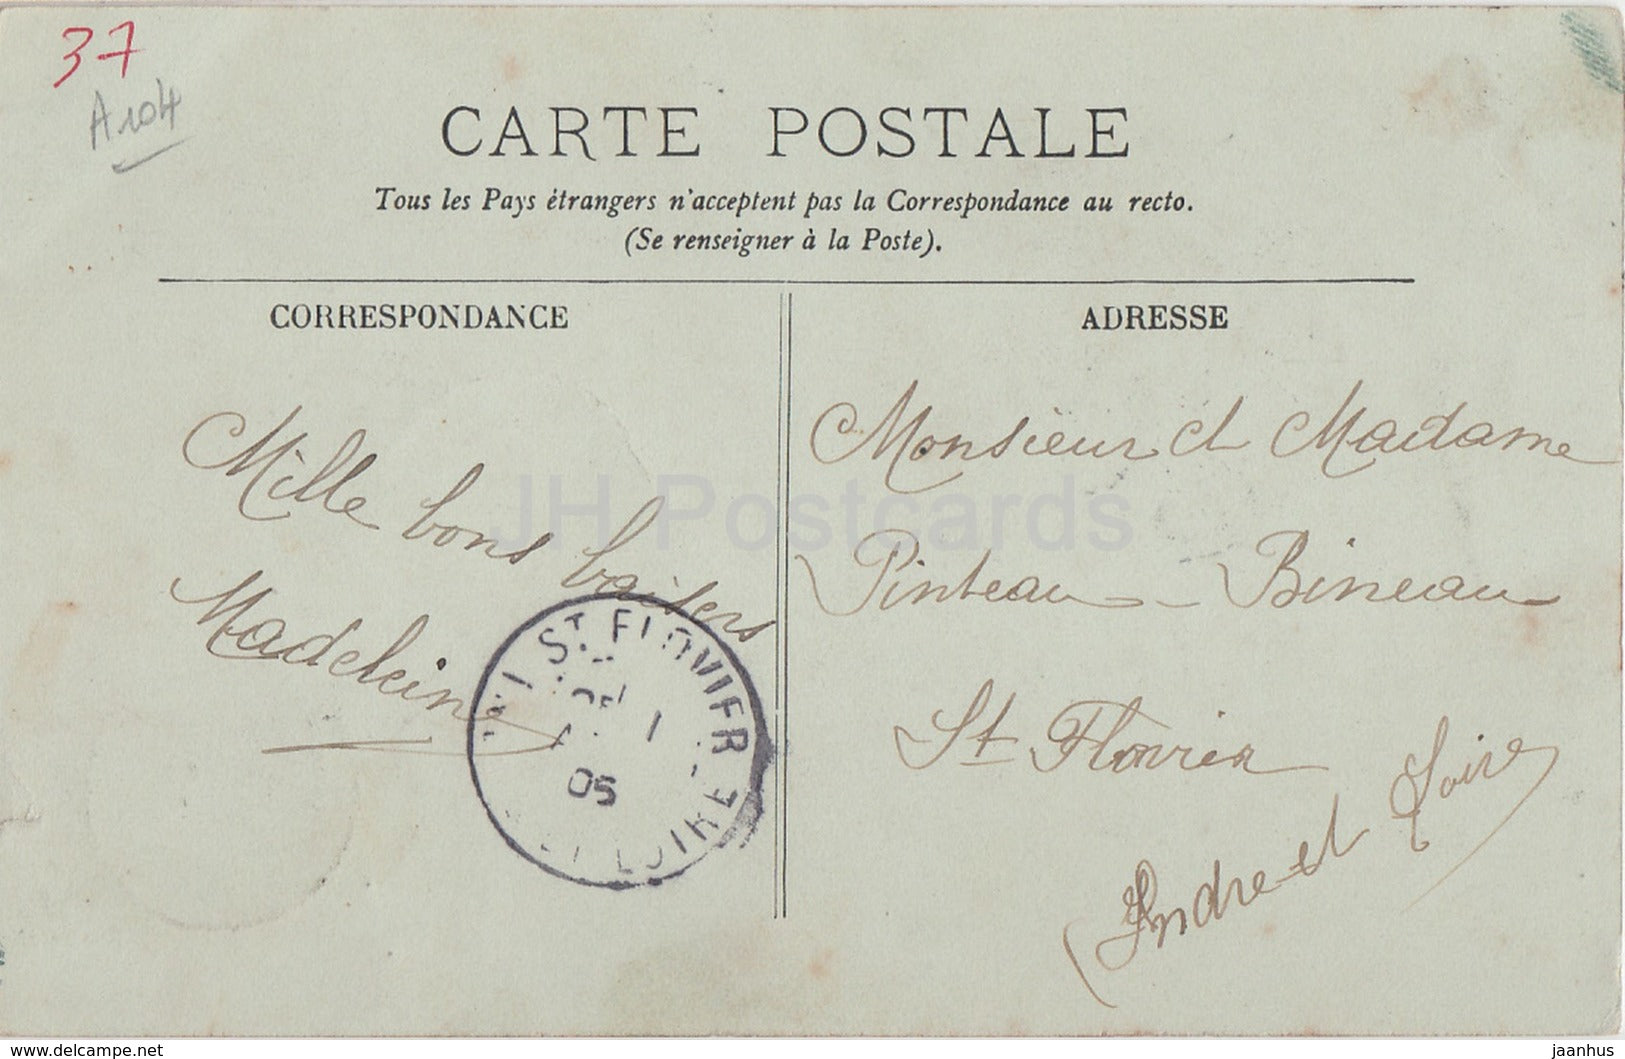 37
A104
CARTE POSTALE
Tous les Pays étrangers n'acceptent pas la Correspondance au recto.
(Se renseigner à la Poste).
CORRESPONDANCE
ADRESSE
Mille bons baisers
Madeleine
Monsieur et Madame
Pinteau - Bineau
St Flovier
(Indre-et Loire)
ST FLOVIER
1
05
LOIRE
JH Postcards
www.delcampe.net
jaanhus